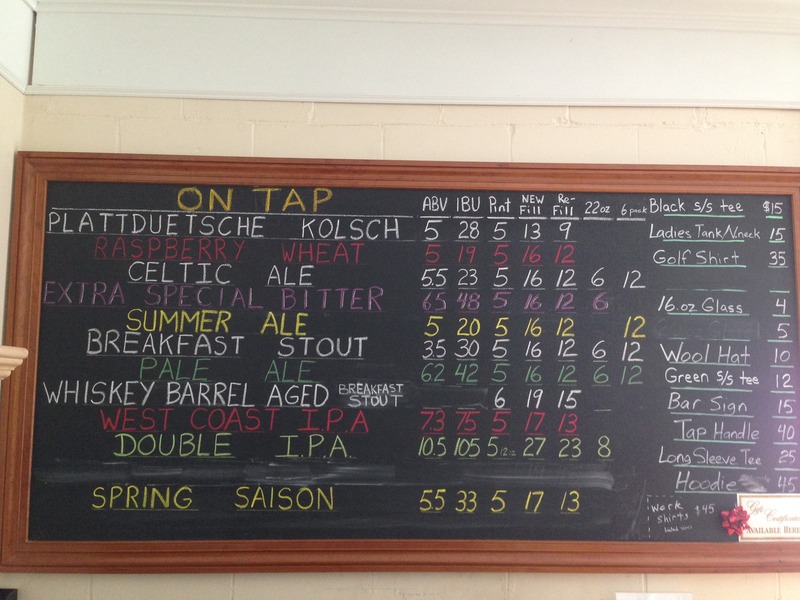 ON TAP ABV IBU Pint NEW Fill Re-Fill 22oz 6 pack
PLATTDUETSCHE KOLSCH 5 28 5 13 9
RASPBERRY WHEAT 5 19 5 16 12
CELTIC ALE 5.5 23 5 16 12 6 12
EXTRA SPECIAL BITTER 6.5 48 5 16 12 6
SUMMER ALE 5 20 5 16 12 12
BREAKFAST STOUT 3.5 30 5 16 12 6 12
PALE ALE 6.2 42 5 16 12 6 12
WHISKEY BARREL AGED BREAKFAST STOUT 6 19 15
WEST COAST I.P.A 7.3 75 5 17 13
DOUBLE I.P.A. 10.5 105 5 12oz 27 23 8
SPRING SAISON 5.5 33 5 17 13
Black s/s tee $15
Ladies Tank/Vneck 15
Golf Shirt 35
16 oz Glass 4
5
Wool Hat 10
Green s/s tee 12
Bar Sign 15
Tap Handle 40
Long Sleeve Tee 25
Hoodie 45
Work Shirts $45
Gift Certificates
AVAILABLE HERE